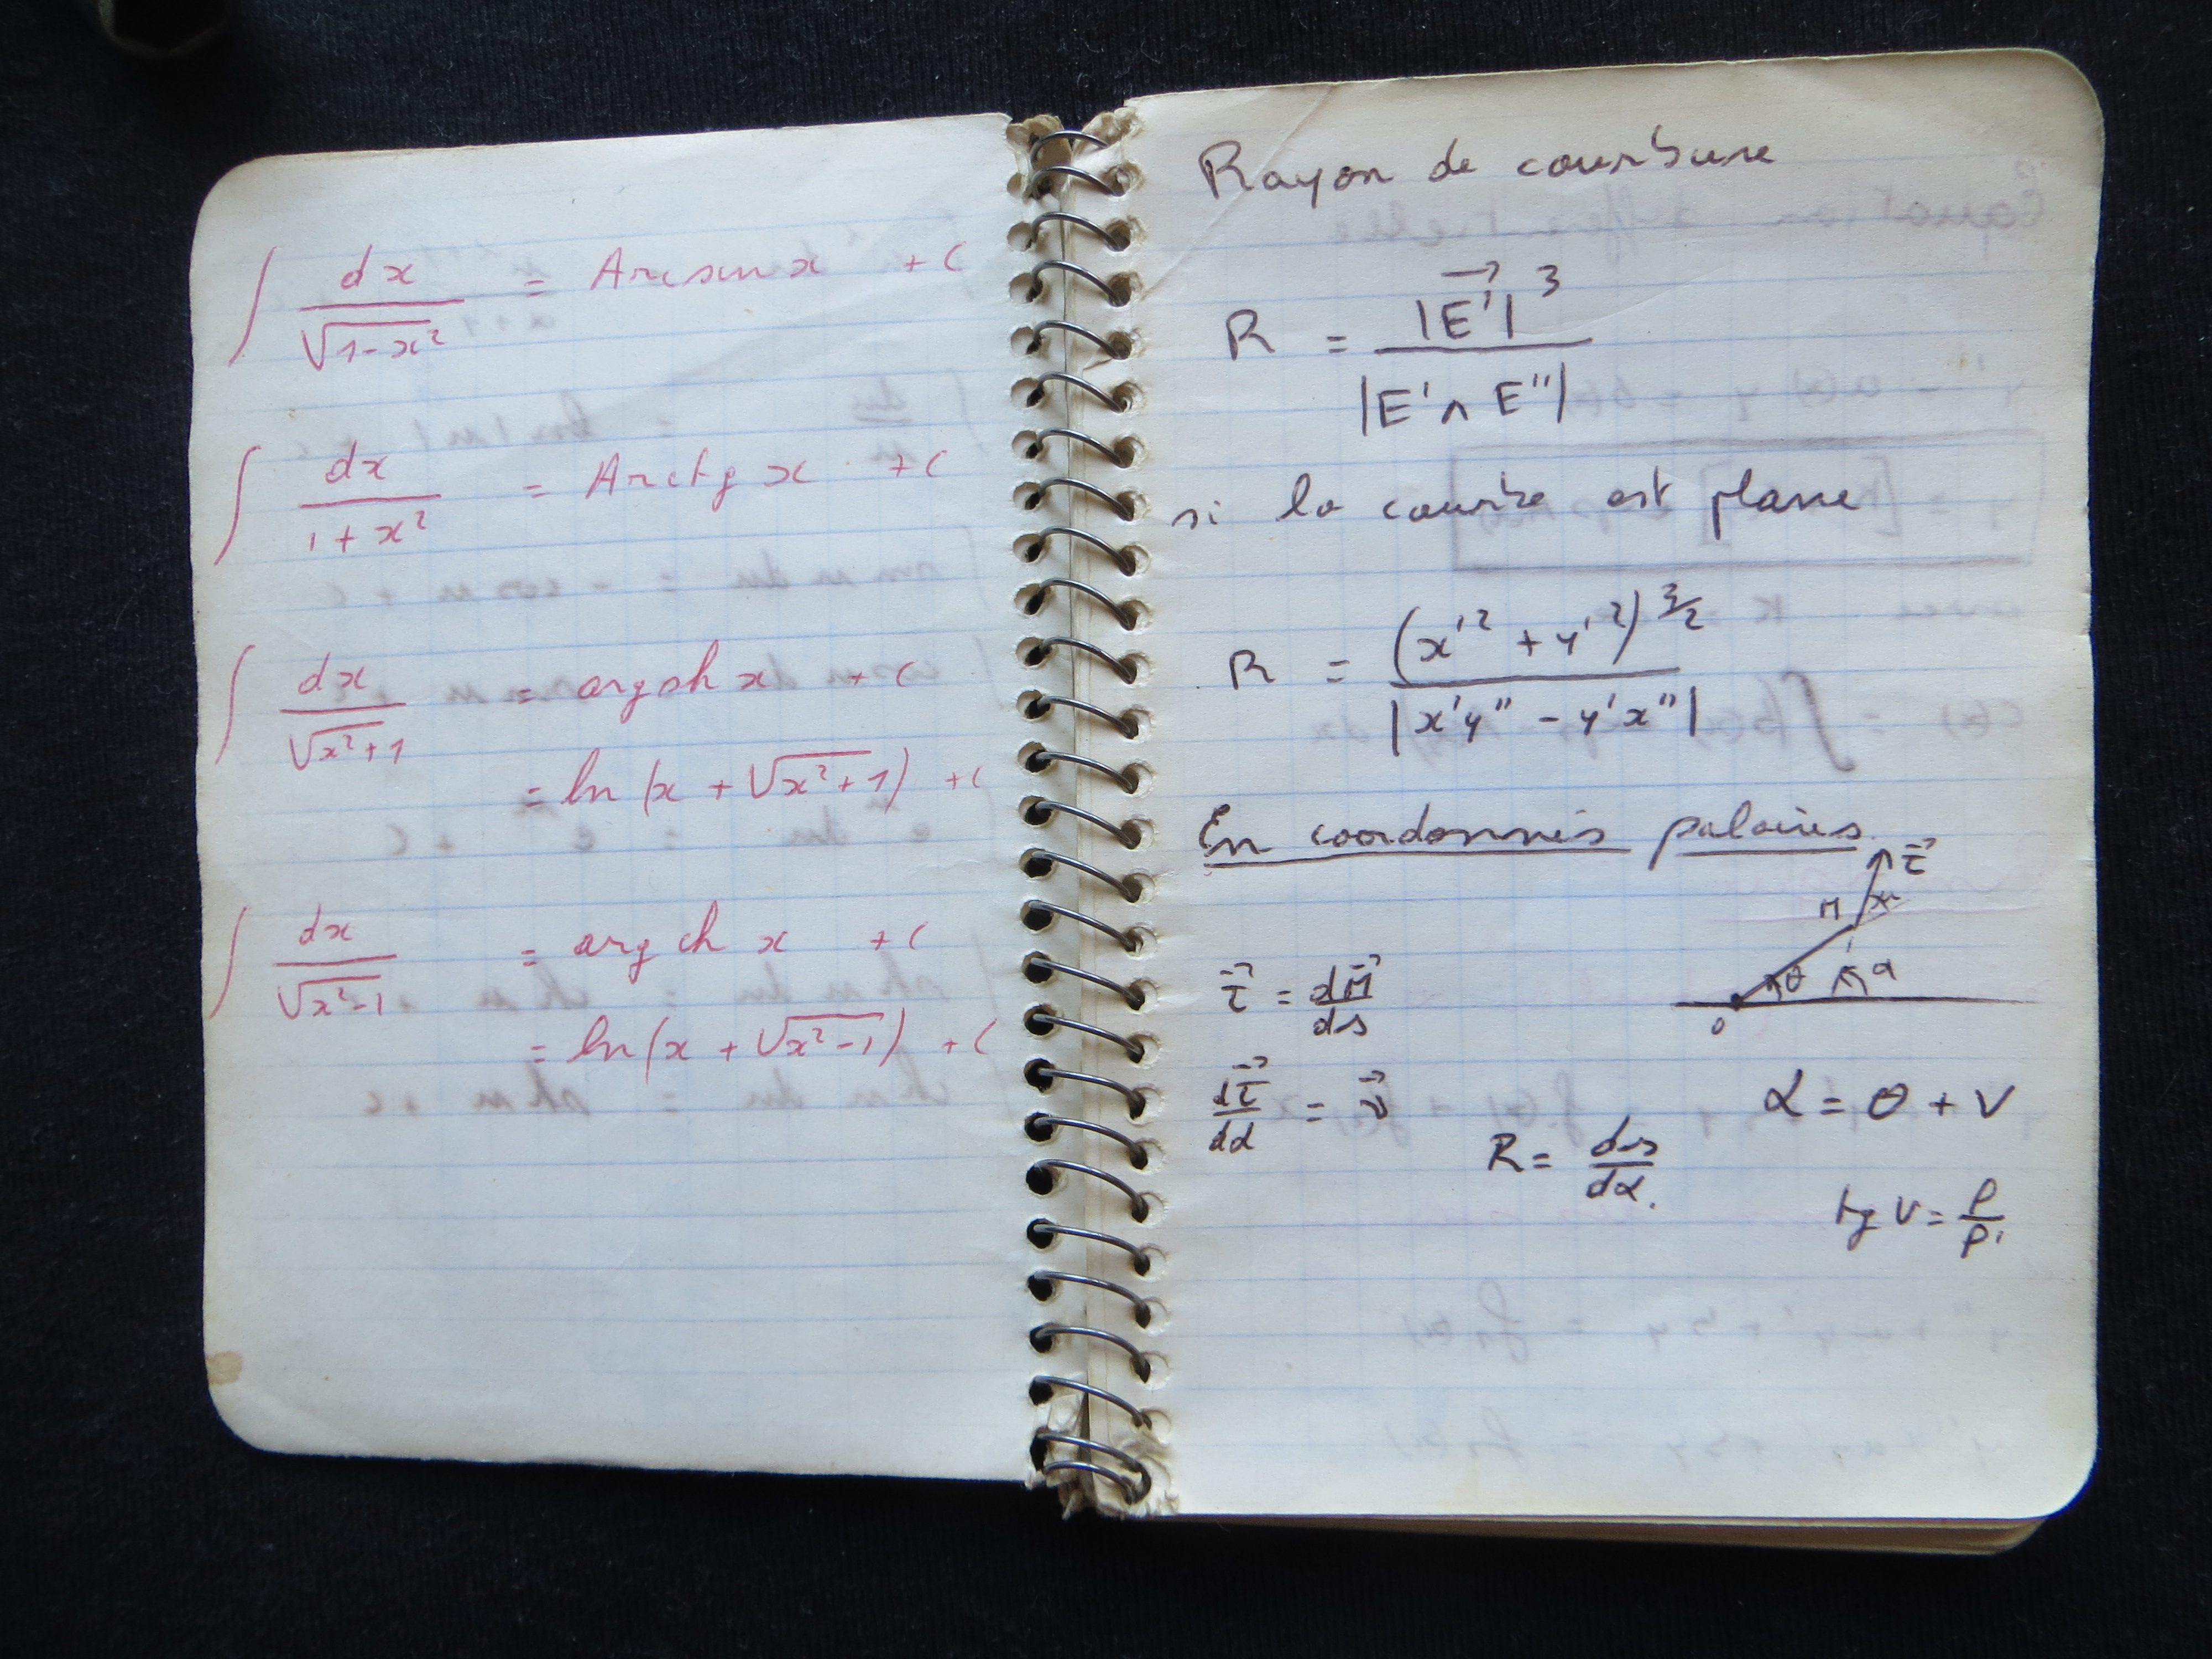 ∫ dx/√(1-x²) = Arcsin x + C
∫ dx/(1+x²) = Arctg x + C
∫ dx/√(x²+1) = argsh x + C
= ln (x + √(x²+1)) + C
∫ dx/√(x²-1) = argch x + C
= ln (x + √(x²-1)) + C
Rayon de courbure
R = |E⃗'|³ / |E' ∧ E"|
si la courbe est plane
R = (x'² + y'²)^(3/2) / |x'y" - y'x"|
En coordonnées polaires
τ⃗
M
θ α
O
τ⃗ = dM⃗/ds
dτ⃗/dα = ν⃗
α = θ + V
R = ds/dα.
tg V = ρ/ρ'